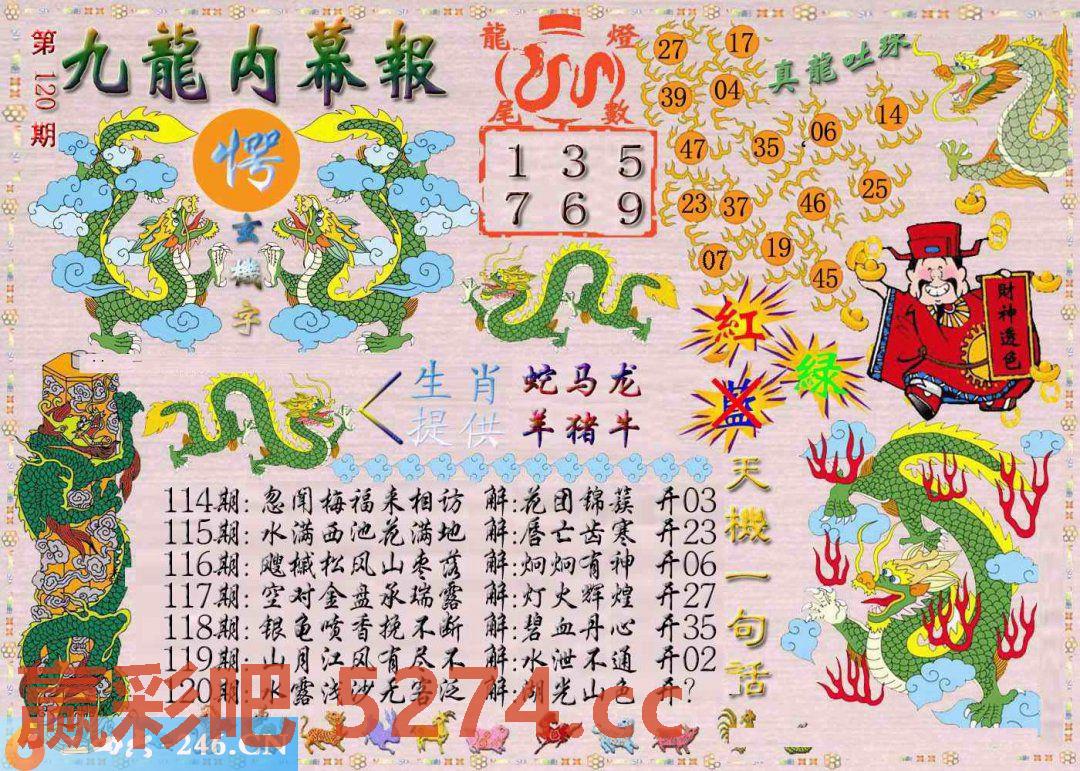 第120期
九龍内幕報
愕
玄機字
龍燈
尾數
1 3 5
7 6 9
真龍吐珠
27 17
39 04
47 35 06 14
23 37 46 25
07 19 45
財神透色
紅
绿
蓝
生肖 蛇马龙
提供 羊猪牛
天機一句话
114期: 忽闻梅福来相访 解:花团锦蔟 开03
115期: 水满西池花满地 解:唇亡齿寒 开23
116期: 飕槭松风山枣落 解:炯炯有神 开06
117期: 空对金盘承瑞露 解:灯火辉煌 开27
118期: 银龟喷香挽不断 解:碧血丹心 开35
119期: 山月江风有尽不 解:水泄不通 开02
120期: 水露浅沙无害泛 解:湖光山色 开?
赢彩吧 5274.cc
246.CN